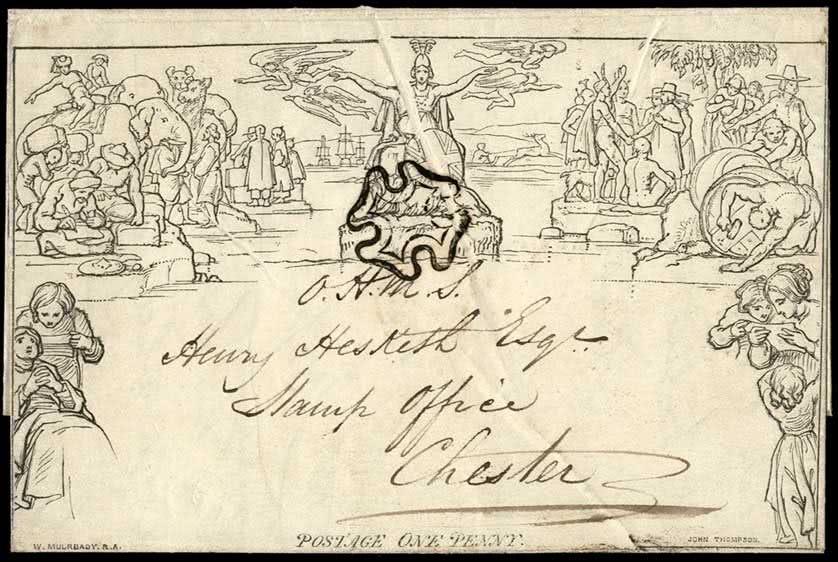 O.H.M.S.
Henry Hesketh Esqr.
Stamp Office
Chester
W. MULREADY, R.A.
POSTAGE ONE PENNY.
JOHN THOMPSON.